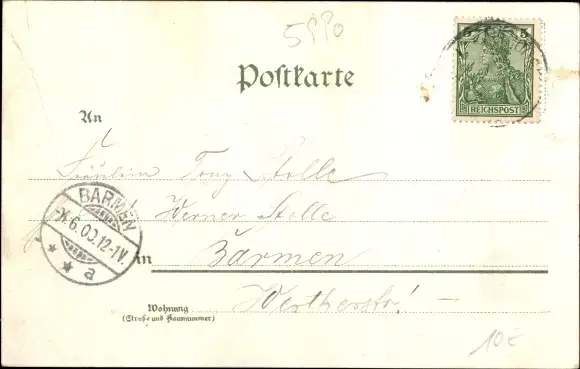 5
REICHSPOST
Postkarte
An
Fräulein Tony Stolle
Werner Stolle
BARMEN
6.00.12-1V.
a
in Barmen
Wertherstr!
Wohnung
(Straße und Hausnummer)
10